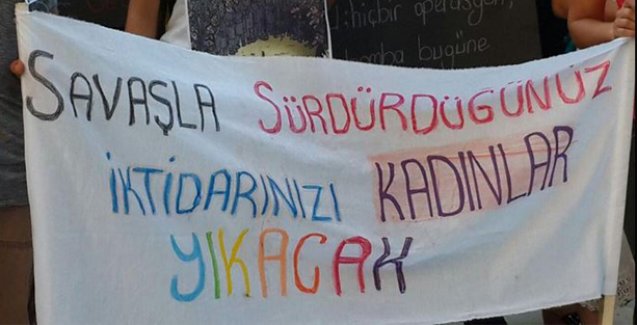 :hiçbir operasyon,
bomba bugüne
SAVAŞLA SÜRDÜRDÜĞÜNÜZ
İKTİDARINIZI KADINLAR
YIKACAK